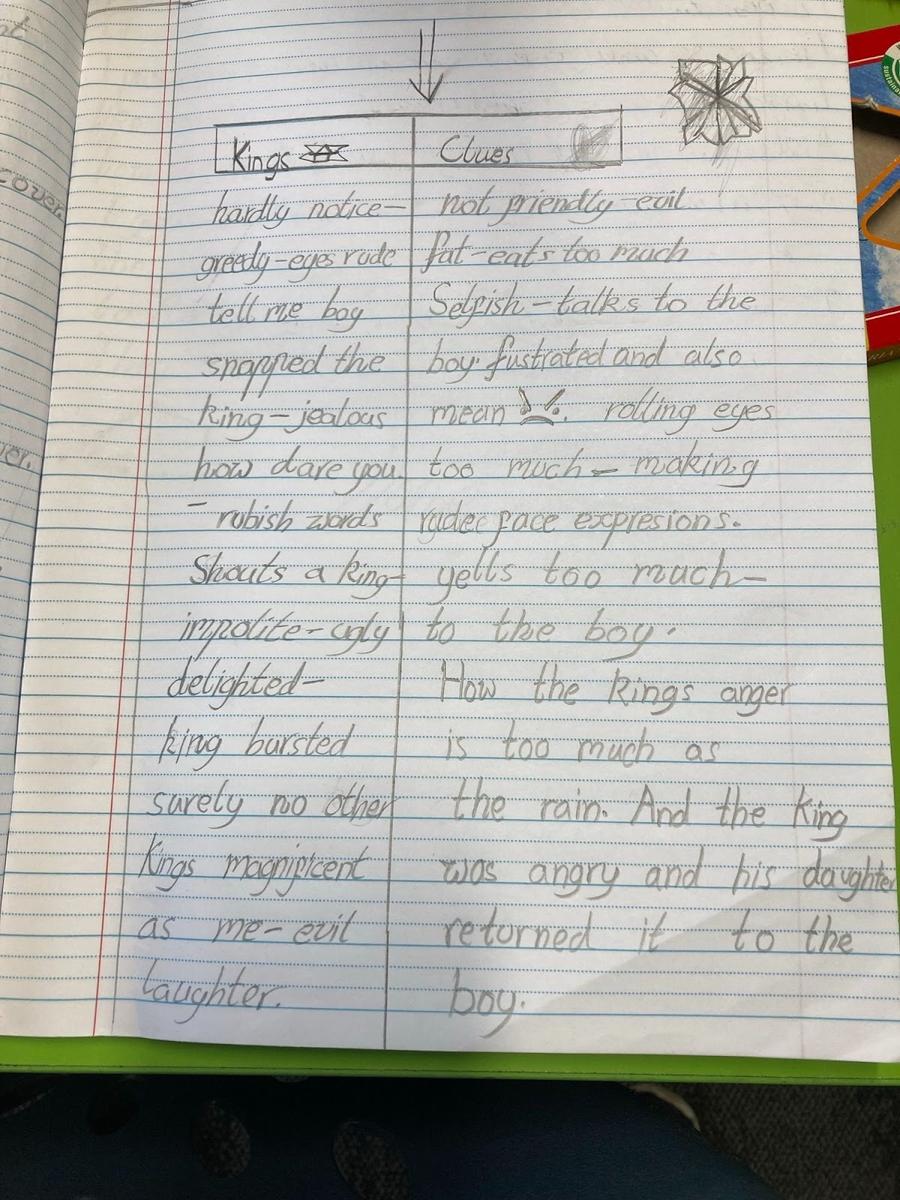 Kings Clues
hardly notice- not friendly-evil
greedy-eyes rude fat-eats too much
tell me boy Selfish-talks to the
snapped the boy fustrated and also
king-jealous mean rolling eyes
how dare you. too much-making
- rubish words rude face expresions.
Shouts a king- yells too much-
impolite-ugly to the boy.
delighted- How the kings anger
king bursted is too much as
surely no other the rain. And the King
Kings magnificent was angry and his daughter
as me-evil returned it to the
laughter. boy.
cover.